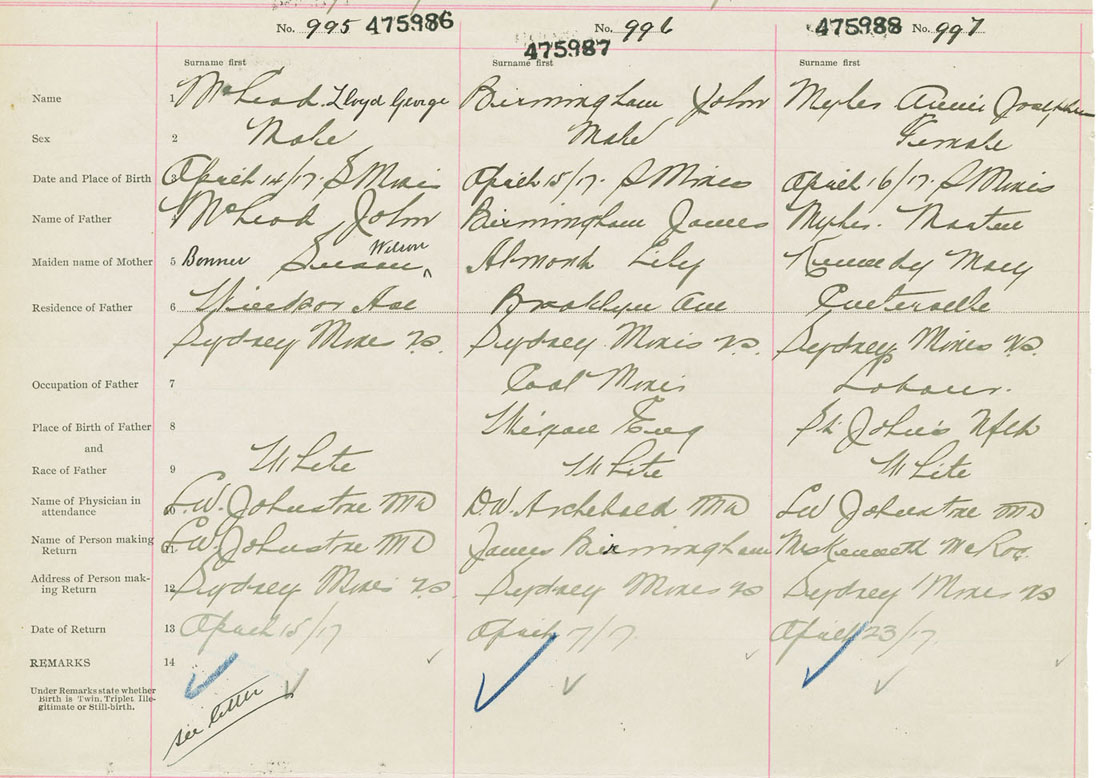 No. 995 475986 No. 996 475988 No. 997
475987
Surname first Surname first Surname first
Name 1 McLeod Lloyd George Birmingham John Myles Annie Josephine
Sex 2 Male Male Female
Date and Place of Birth 3 April 14/17. S Mines April 15/17. S Mines April 16/17. S Mines
Name of Father 4 McLeod John Birmingham James Myles. Martin
Wilson
Maiden name of Mother 5 Bonner Susan ^ Almond Lily Kennedy Mary
Residence of Father 6 Windsor Ave Brooklyn Ave
Sydney Mines N.S. Sydney Mines N.S. Sydney Mines N.S.
Occupation of Father 7 Coal Miner Labour.
Place of Birth of Father 8 Wigan Eng St. John's Nfld
and
Race of Father 9 White White White
Name of Physician in
attendance 10 L.W. Johnstone MD D.W. Archibald MD LW Johnstone MD
Name of Person making
Return 11 L.W. Johnstone MD James Birmingham Mrs Kenneth McRae
Address of Person mak-
ing Return 12 Sydney Mines N.S. Sydney Mines NS Sydney Mines NS
Date of Return 13 April 15/17 April 7/17. April 23/17
REMARKS 14
Under Remarks state whether
Birth is Twin, Triplet, Ille-
gitimate or Still-birth.
see letter